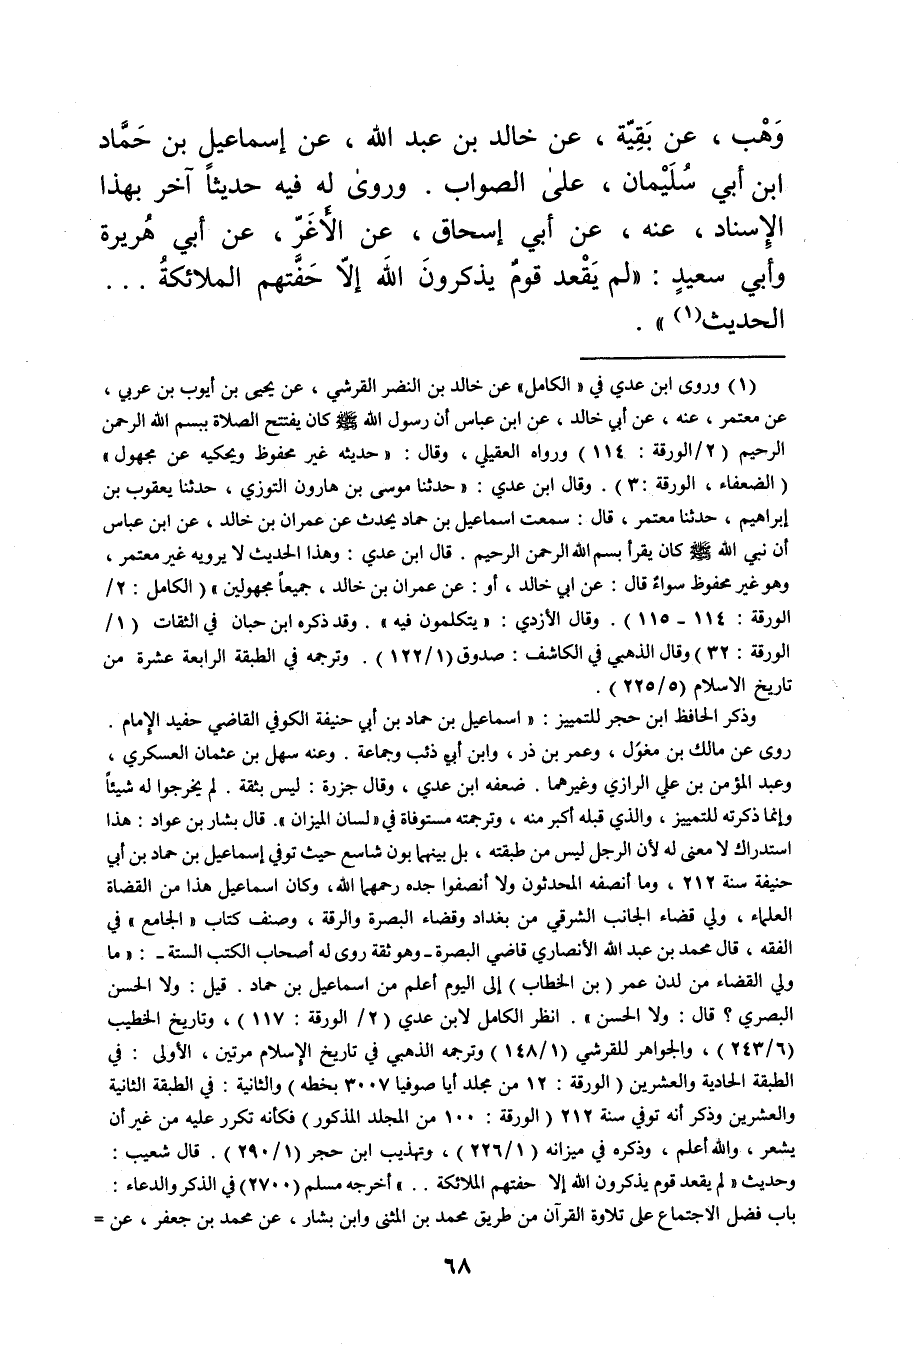 وَهْب ، عن بَقِيَّة ، عن خالد بن عبد الله ، عن إسماعيل بن حَمَّاد
ابن أبي سُلَيْمان ، علىٰ الصواب . وروىٰ له فيه حديثاً آخر بهذا
الإِسناد ، عنه ، عن أبي إسحاق ، عن الأَغَرّ ، عن أبي هُريرة
وأبي سعيدٍ : «لم يَقْعد قومٌ يذكرونَ الله إلاّ حَفَّتهم الملائكةُ ...
الحديث(١)» .
(١) وروى ابن عدي في « الكامل» عن خالد بن النضر القرشي ، عن يحيى بن أيوب بن عربي ،
عن معتمر ، عنه ، عن أبي خالد ، عن ابن عباس أن رسول الله ﷺ كان يفتتح الصلاة ببسم الله الرحمن
الرحيم (٢/الورقة : ١١٤) ورواه العقيلي ، وقال : «حديثه غير محفوظ ويحكيه عن مجهول»
( الضعفاء ، الورقة :٣) . وقال ابن عدي : «حدثنا موسى بن هارون التوزي ، حدثنا يعقوب بن
إبراهيم ، حدثنا معتمر ، قال : سمعت اسماعيل بن حماد يحدث عن عمران بن خالد ، عن ابن عباس
أن نبي الله ﷺ كان يقرأ بسم الله الرحمن الرحيم . قال ابن عدي : وهذا الحديث لا يرويه غير معتمر ،
وهو غير محفوظ سواءً قال : عن ابي خالد ، أو : عن عمران بن خالد ، جميعاً مجهولين » ( الكامل : ٢/
الورقة : ١١٤ - ١١٥) . وقال الأزدي : « يتكلمون فيه » . وقد ذكره ابن حبان في الثقات (١/
الورقة : ٣٢) وقال الذهبي في الكاشف : صدوق (١/١٢٢) . وترجمه في الطبقة الرابعة عشرة من
تاريخ الاسلام (٥/٢٢٥) .
وذكر الحافظ ابن حجر للتمييز : « اسماعيل بن حماد بن أبي حنيفة الكوفي القاضي حفيد الإمام .
روى عن مالك بن مغوَل ، وعمر بن ذر ، وابن أبي ذئب وجماعة . وعنه سهل بن عثمان العسكري ،
وعبد المؤمن بن علي الرازي وغيرهما . ضعفه ابن عدي ، وقال جزرة : ليس بثقة . لم يخرجوا له شيئاً
وإنما ذكرته للتمييز ، والذي قبله أكبر منه ، وترجمته مستوفاة في «لسان الميزان». قال بشار بن عواد : هذا
استدراك لا معنى له لأن الرجل ليس من طبقته ، بل بينهما بون شاسع حيث توفي إسماعيل بن حماد بن أبي
حنيفة سنة ٢١٢ ، وما أنصفه المحدثون ولا أنصفوا جده رحمهما الله، وكان اسماعيل هذا من القضاة
العلماء ، ولي قضاء الجانب الشرقي من بغداد وقضاء البصرة والرقة ، وصنف كتاب « الجامع » في
الفقه ، قال محمد بن عبد الله الأنصاري قاضي البصرة - وهو ثقة روى له أصحاب الكتب الستة - : «ما
ولي القضاء من لدن عمر (بن الخطاب) إلى اليوم أعلم من اسماعيل بن حماد . قيل : ولا الحسن
البصري ؟ قال : ولا الحسن» . انظر الكامل لابن عدي (٢/ الورقة : ١١٧) ، وتاريخ الخطيب
(٢٤٣/٦) ، والجواهر للقرشي (١٤٨/١) وترجمه الذهبي في تاريخ الإسلام مرتين ، الأولى : في
الطبقة الحادية والعشرين ( الورقة : ١٢ من مجلد أيا صوفيا ٣٠٠٧ بخطه) والثانية : في الطبقة الثانية
والعشرين وذكر أنه توفي سنة ٢١٢ ( الورقة : ١٠٠ من المجلد المذكور) فكأنه تكرر عليه من غير أن
يشعر ، والله أعلم ، وذكره في ميزانه (٢٢٦/١) ، وتهذيب ابن حجر (٢٩٠/١) . قال شعيب :
وحديث « لم يقعد قوم يذكرون الله إلا حفتهم الملائكة .. » أخرجه مسلم (٢٧٠٠) في الذكر والدعاء :
باب فضل الاجتماع على تلاوة القرآن من طريق محمد بن المثنى وابن بشار ، عن محمد بن جعفر ، عن =
٦٨